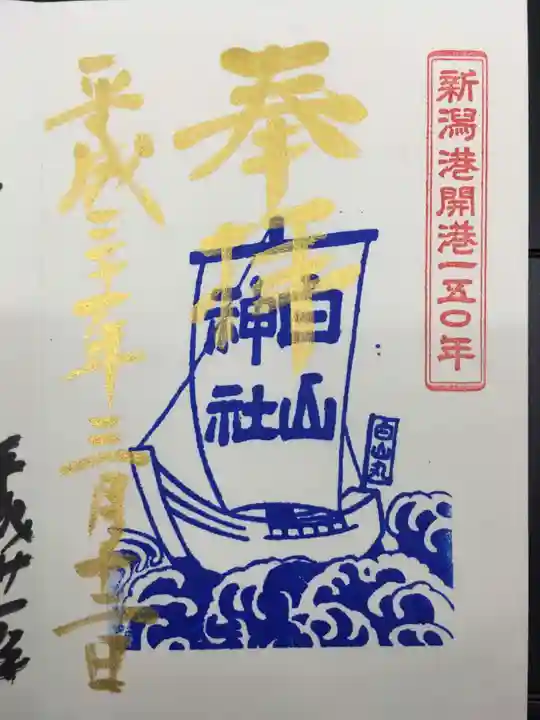 新潟港開港一五〇年
奉拝
白山
神社
白山丸
平成三十一年三月十二日
平成廿一年